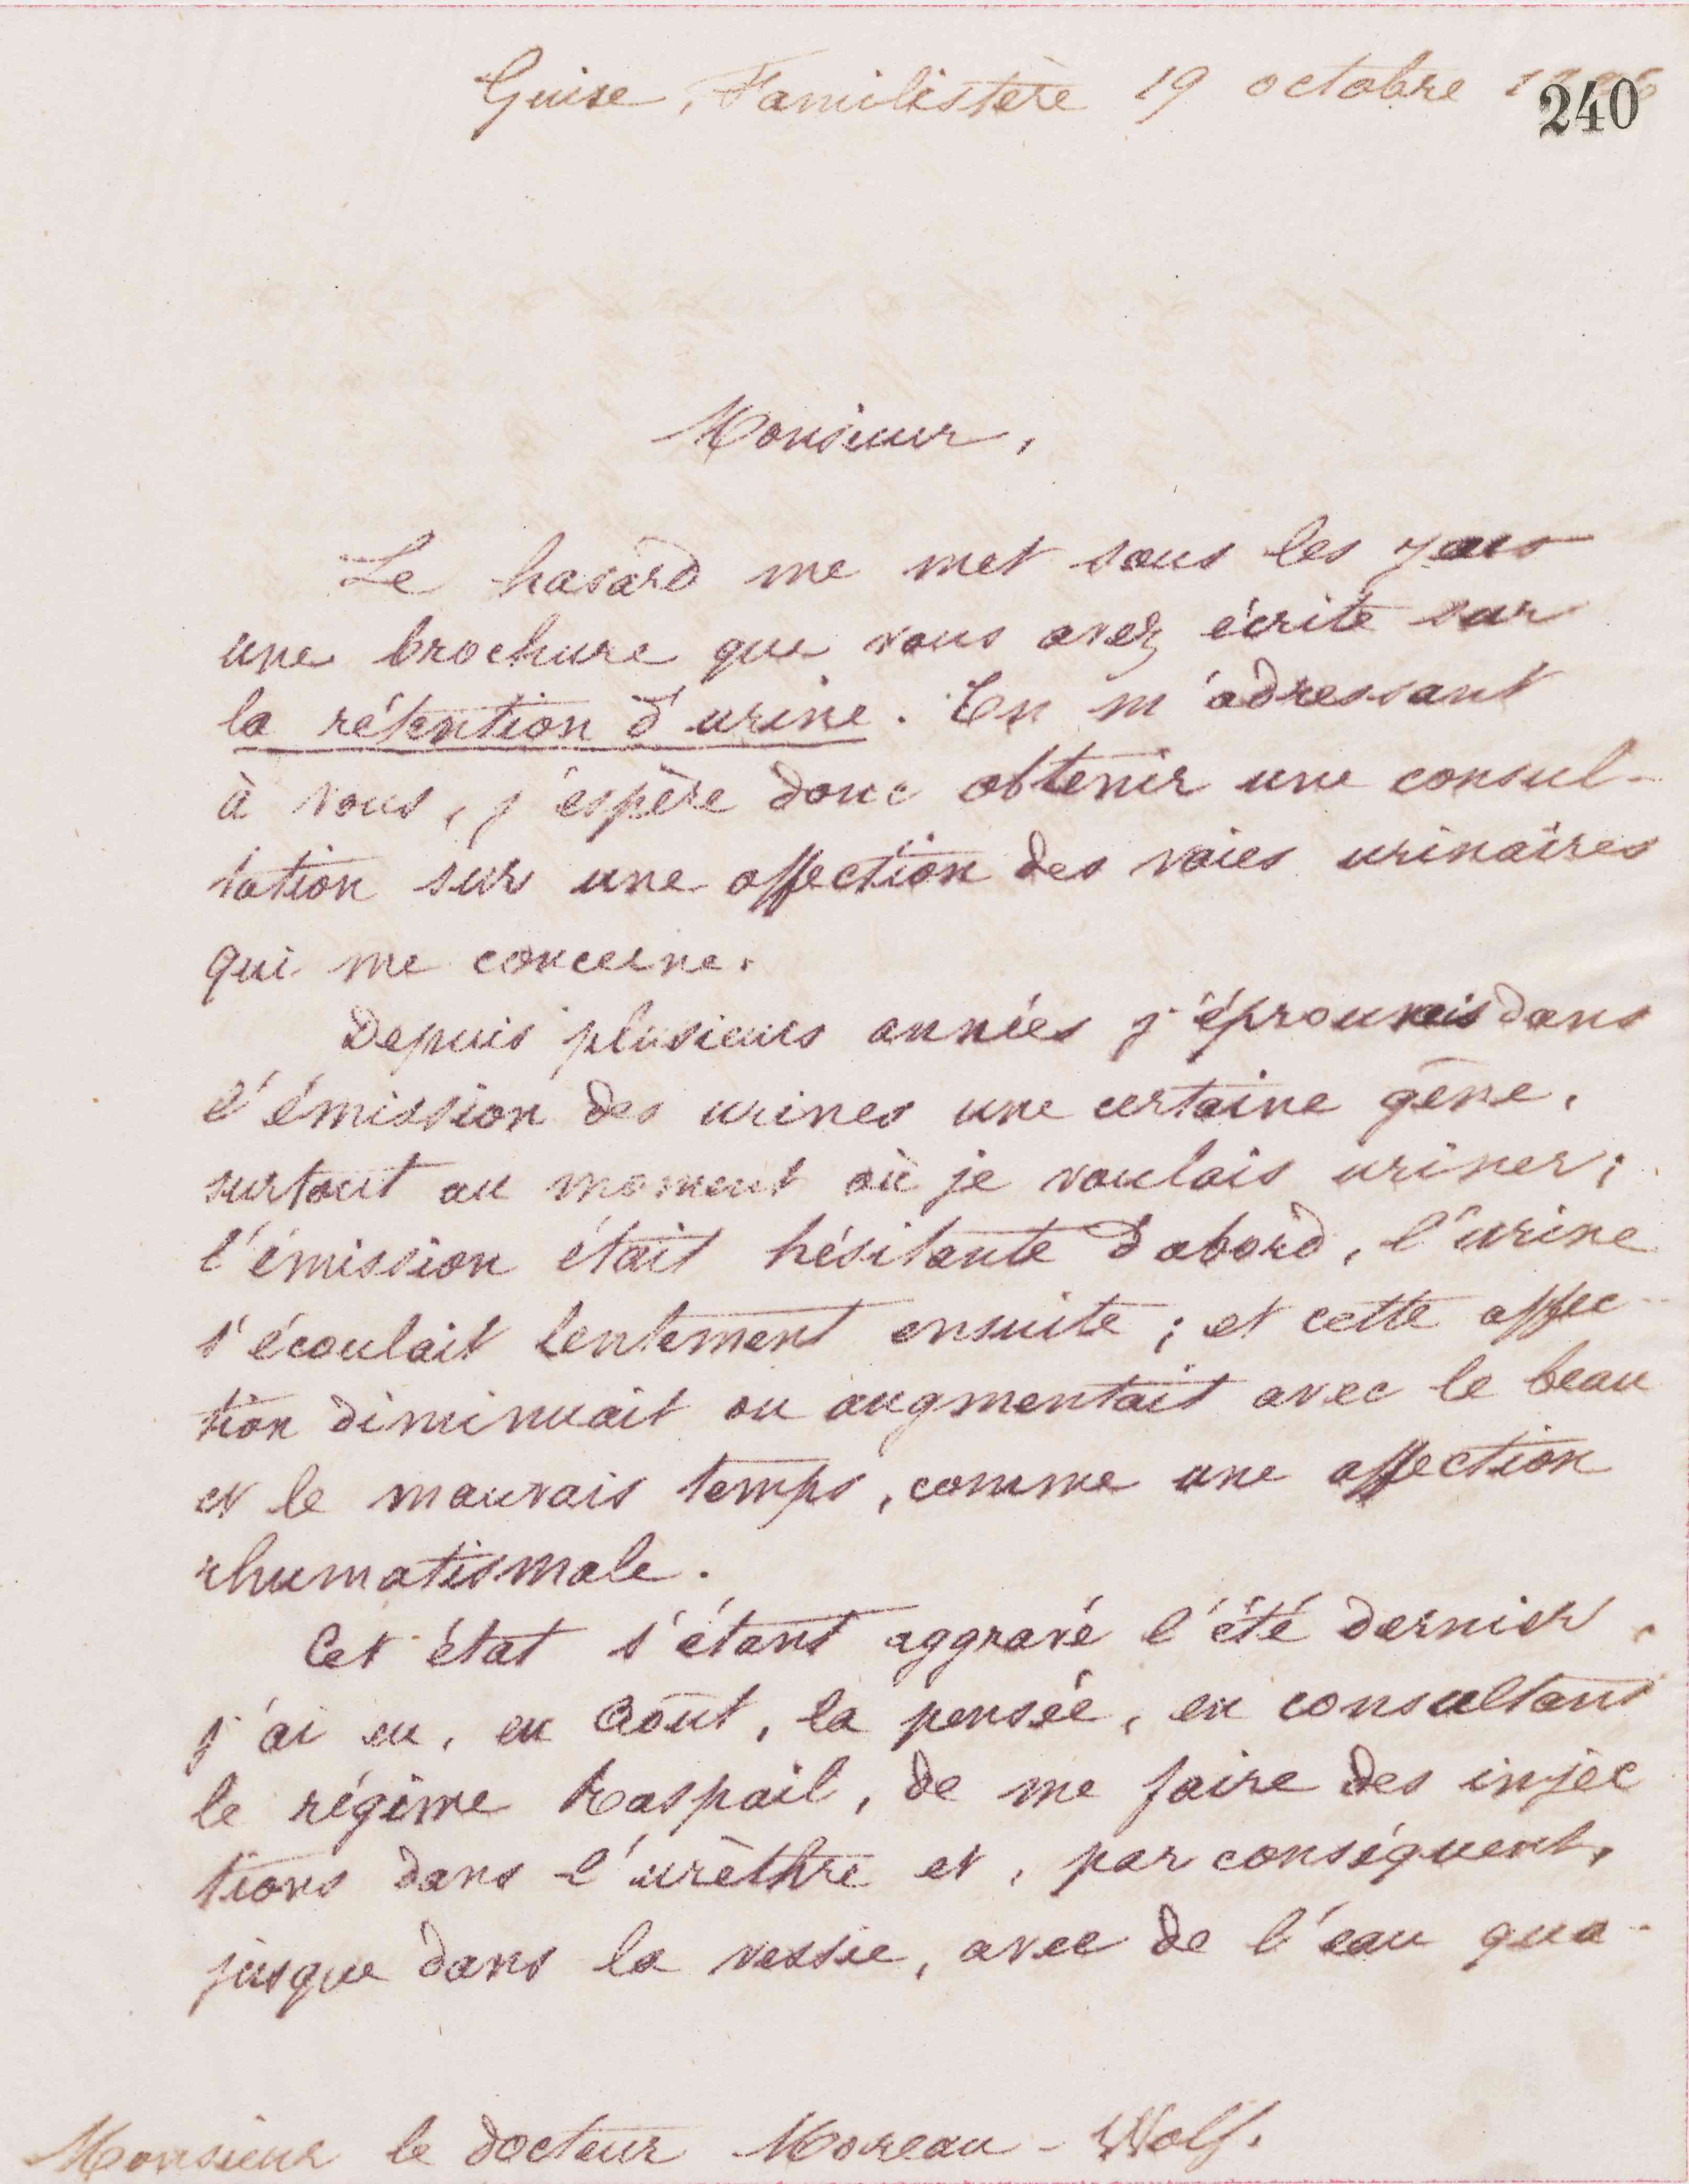 Guise, Familistère 19 octobre
240
Monsieur,
Le hasard me met sous les yeux
une brochure que vous avez écrite sur
la rétention d'urine. En m'adressant
à vous, j'espère donc obtenir une consul-
tation sur une affection des voies urinaires
qui me concerne.
Depuis plusieurs années j'éprouvais dans
l'émission des urines une certaine gêne,
surtout au moment où je voulais uriner ;
l'émission était hésitante d'abord, l'urine
s'écoulait lentement ensuite ; et cette affec-
tion diminuait ou augmentait avec le beau
et le mauvais temps, comme une affection
rhumatismale.
Cet état s'étant aggravé l'été dernier,
j'ai eu, en Août, la pensée, en consultant
le régime Raspail, de me faire des injec
tions dans l'urèthre et, par conséquent,
jusque dans la vessie, avec de l'eau qua-
Monsieur le docteur Moreau-Wolf.